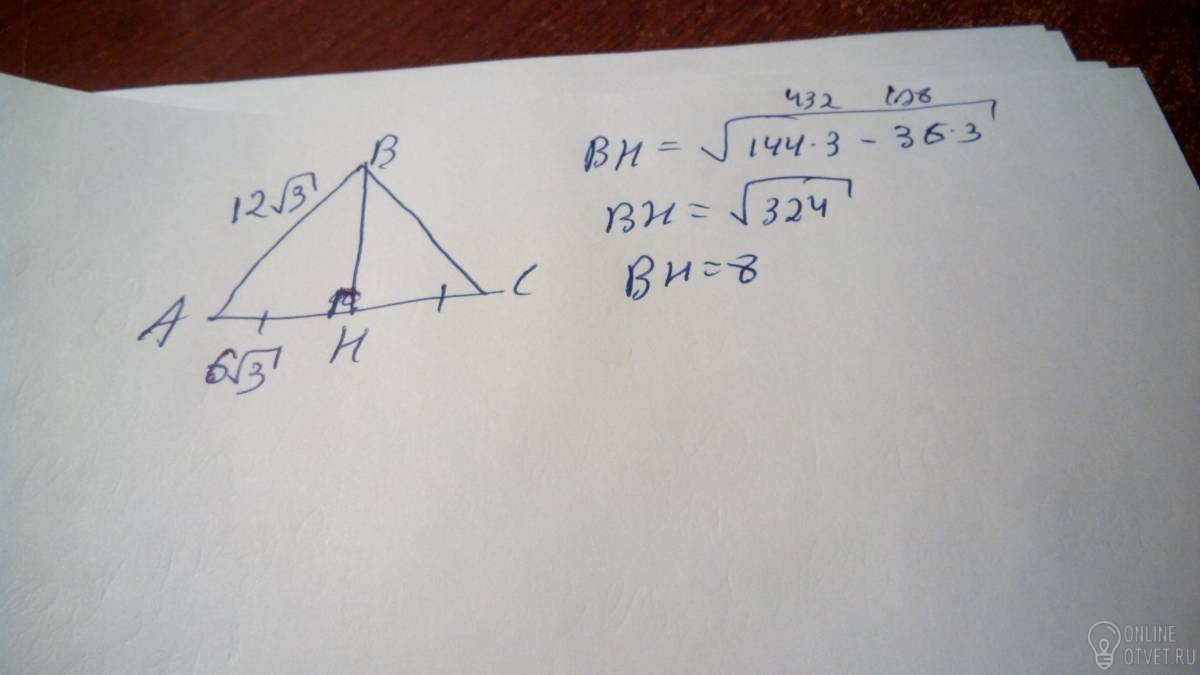 B
12√3
A
H
C
6√3
432 108
BH = √144·3 − 36·3
BH = √324
BH = 8
ONLINE
OTVET.RU